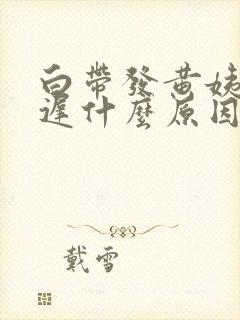 白帶發黃姨
遲什麼原因
戴雪